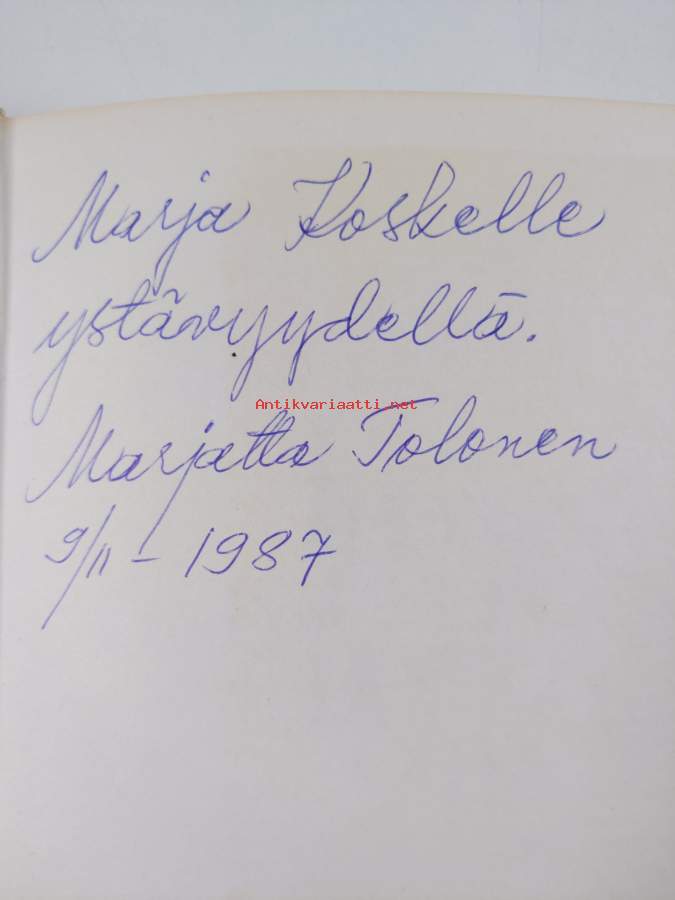 Marja Koskelle
ystävyydellä.
Antikvariaatti.net
Marjatta Tolonen
9/11 – 1987